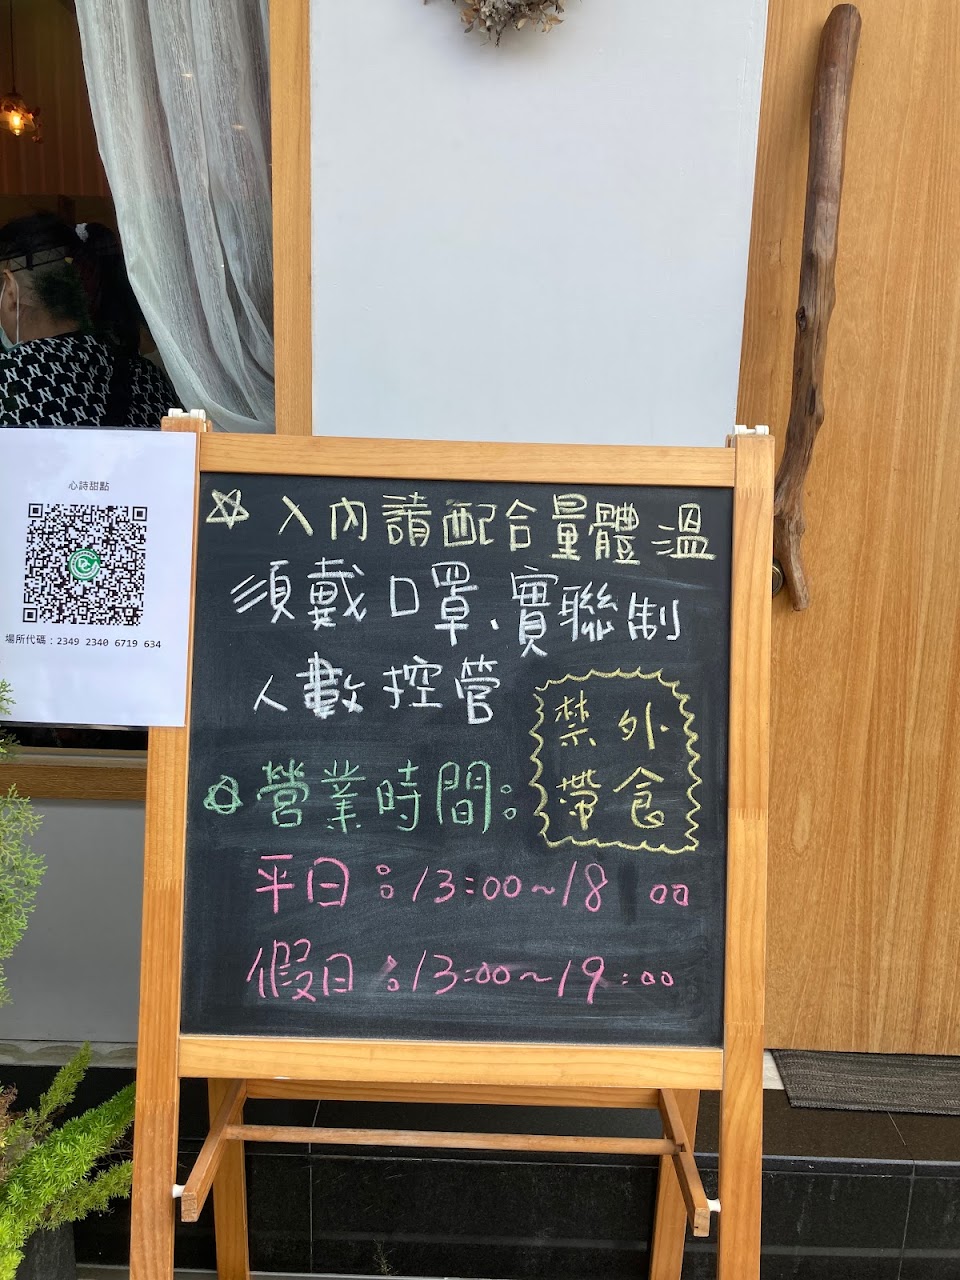 心詩甜點
場所代碼：2349 2340 6719 634
入內請配合量體溫
須戴口罩.實聯制
人數控管
禁外
帶食
營業時間：
平日：13:00~18 00
假日：13:00~19:00